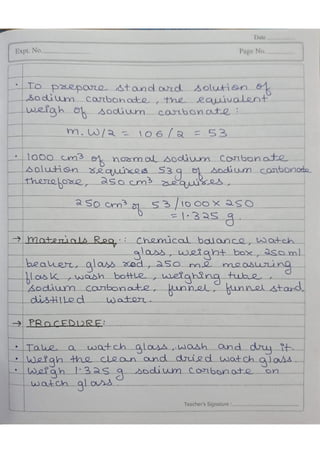 Date
Expt. No.
Page No.
· To prepare standard solution of
sodium carbonate, the equivalent
weigh of sodium carbonate:
m.W/2 = 106/2 = 53
· 1000 cm³ of normal sodium carbonate
solution requires 53g of sodium carbonate
therefore, 250 cm³ requires,
250 cm³ of 53/1000 x 250
= 1.325 g.
→ Materials Req.: Chemical balance, watch
glass, weight box, 250 ml
beaker, glass rod, 250 ml measuring
flask, wash bottle, weighing tube,
sodium carbonate, funnel, funnel stand,
distilled water.
→ PROCEDURE:
· Take a watch glass, wash and dry it.
· Weigh the clean and dried watch glass.
· Weigh 1.325 g sodium carbonate on
watch glass.
Teacher's Signature: